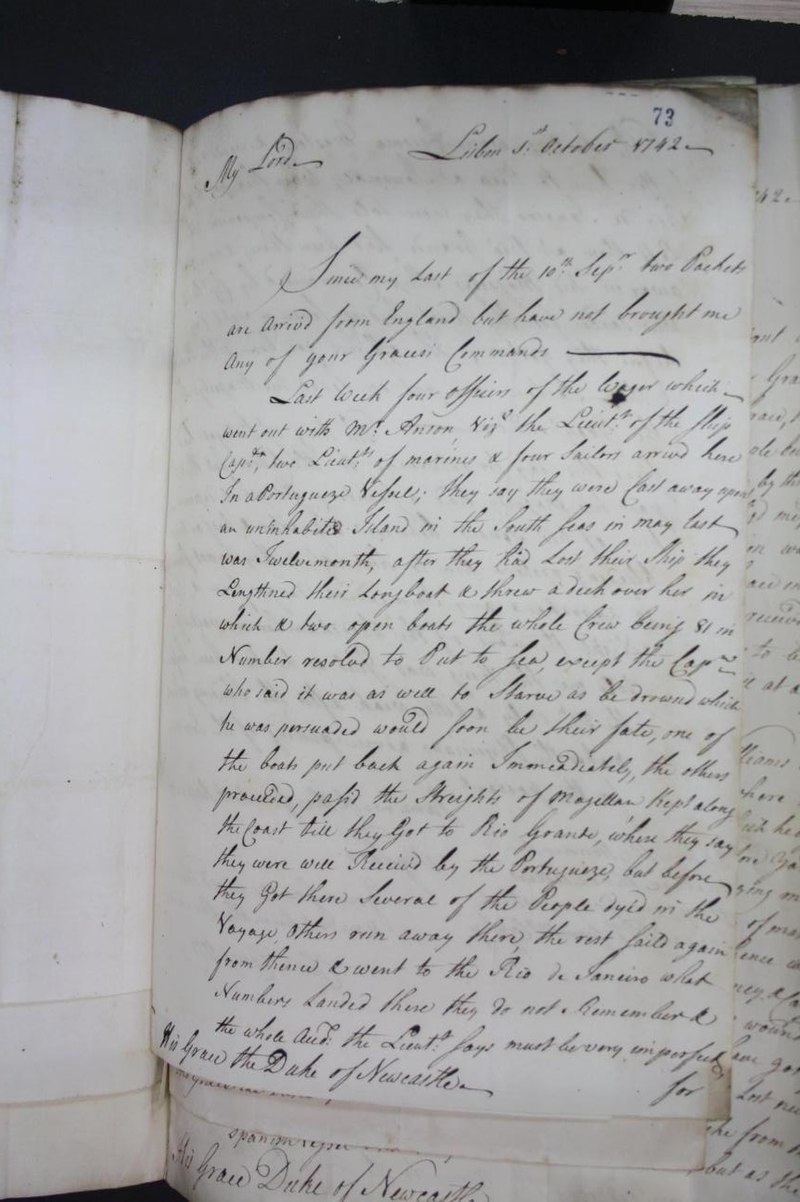 73
Lisbon 1st October 1742
My Lord
Since my Last of the 10th Sepr two Packets
are Arriv'd from England but have not brought me
Any of your Graces Commands
Last Week four Officers of the Wager which
went out with Mr Anson Vizt the Lieutt of the Ship
two Lieuts of marines & four Sailors arrived here
In a Portugueze Vessel; they say they were Cast away upon
an uninhabited Island in the South Seas in may last
was Twelvemonth, after they had Lost their Ship they
Lengthned their Longboat & threw a deck over her in
which & two open boats the whole Crew being 81 in
Number resolvd to Put to Sea, except the Capn
who said it was as well to Starve as be drownd which
he was persuaded would soon be their fate, one of
the boats put back again Immediately, the others
proceeded, pass'd the Streights of Magellan kept along
the Coast till they Got to Rio Grande, where they say
they were well Receiv'd by the Portugueze, but before
they Got there Several of the People dyed in the
Voyage, Others run away there, the rest sail'd again
from thence & went to the Rio de Janeiro what
Numbers Landed there they do not Remember &
the whole Acct the Lieutt says must be very imperfect
for
His Grace the Duke of Newcastle
His Grace Duke of Newcastle